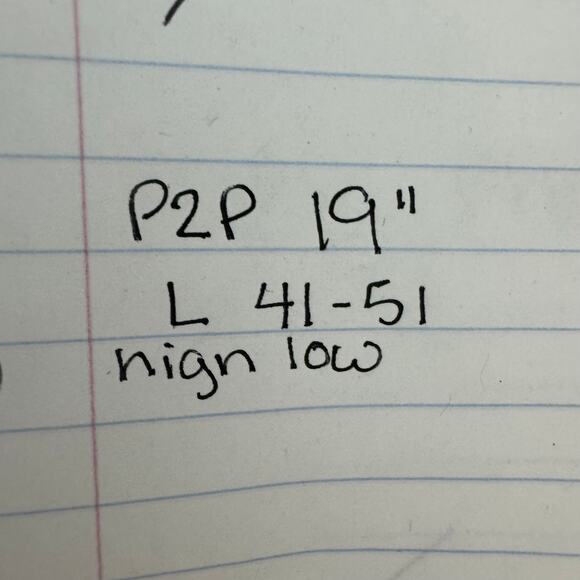 P2P 19"
L 41-51
nign low